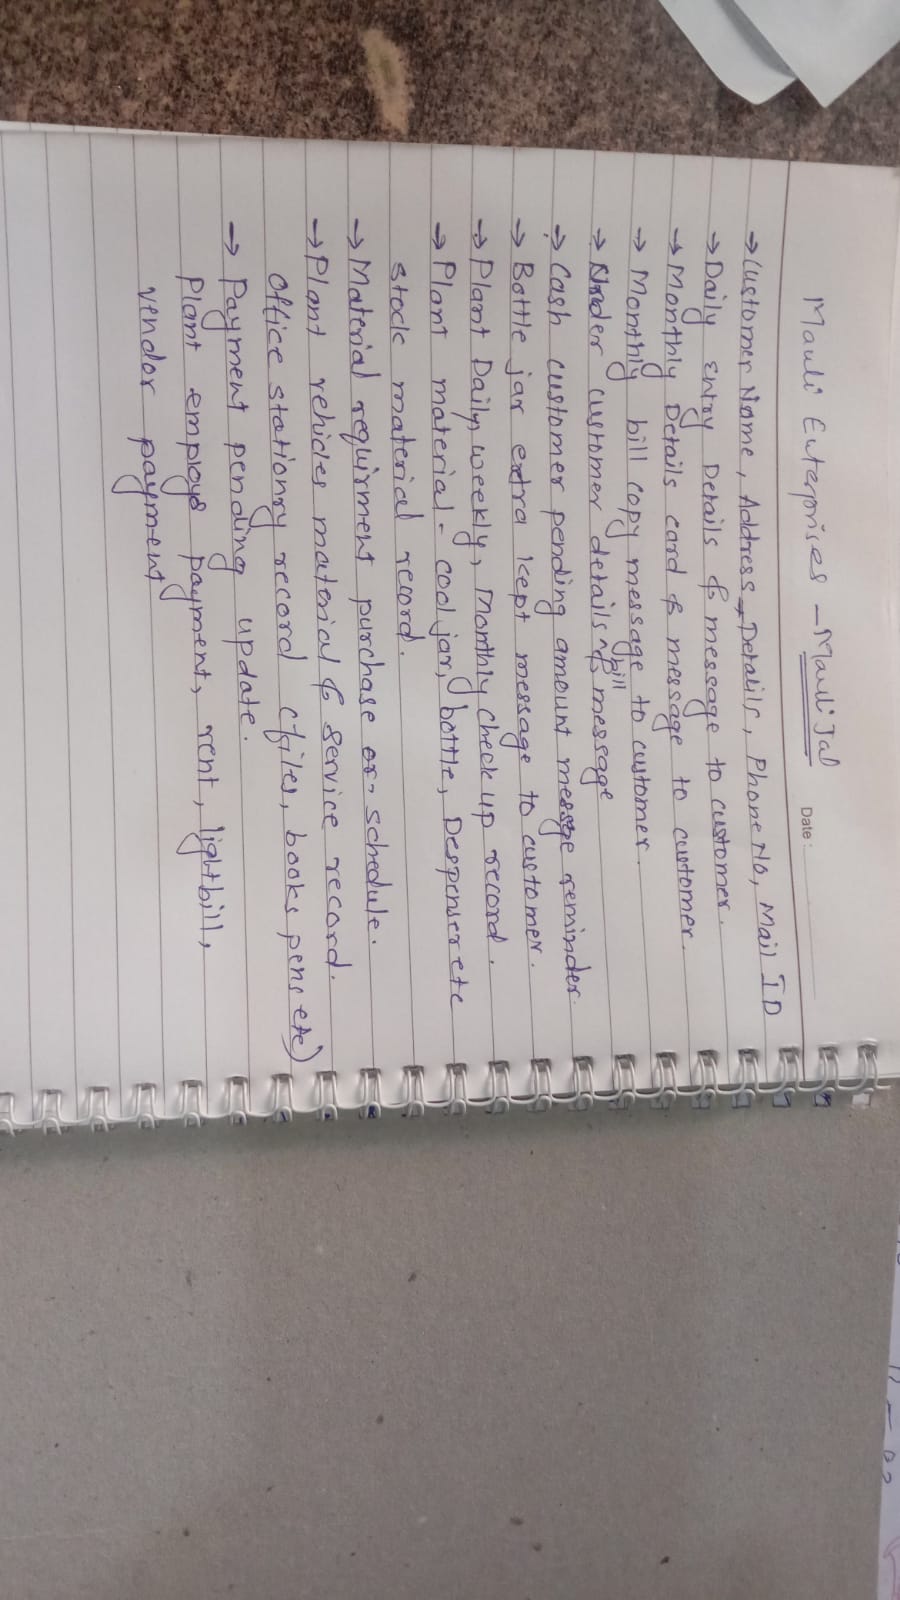 Mauli Enterprises - Mauli Jal
Date :
→ Customer Name, Address, Details, Phone No, Mail ID
→ Daily Entry Details & message to customer.
→ Monthly Details card & message to customer.
→ Monthly bill copy message to customer.
→ customer details bill & message
→ Cash customer pending amount message reminder.
→ Bottle jar extra kept message to customer.
→ Plant Daily, weekly, Monthly check up record.
→ Plant material - cool jar, bottle, Despenser etc
stock material record.
→ Material requirment purchase or schedule.
→ Plant vehicles material & service record.
Office stationry record (files, books pens etc)
→ Payment pending update.
Plant employe payment, rent, lightbill,
vendor payment